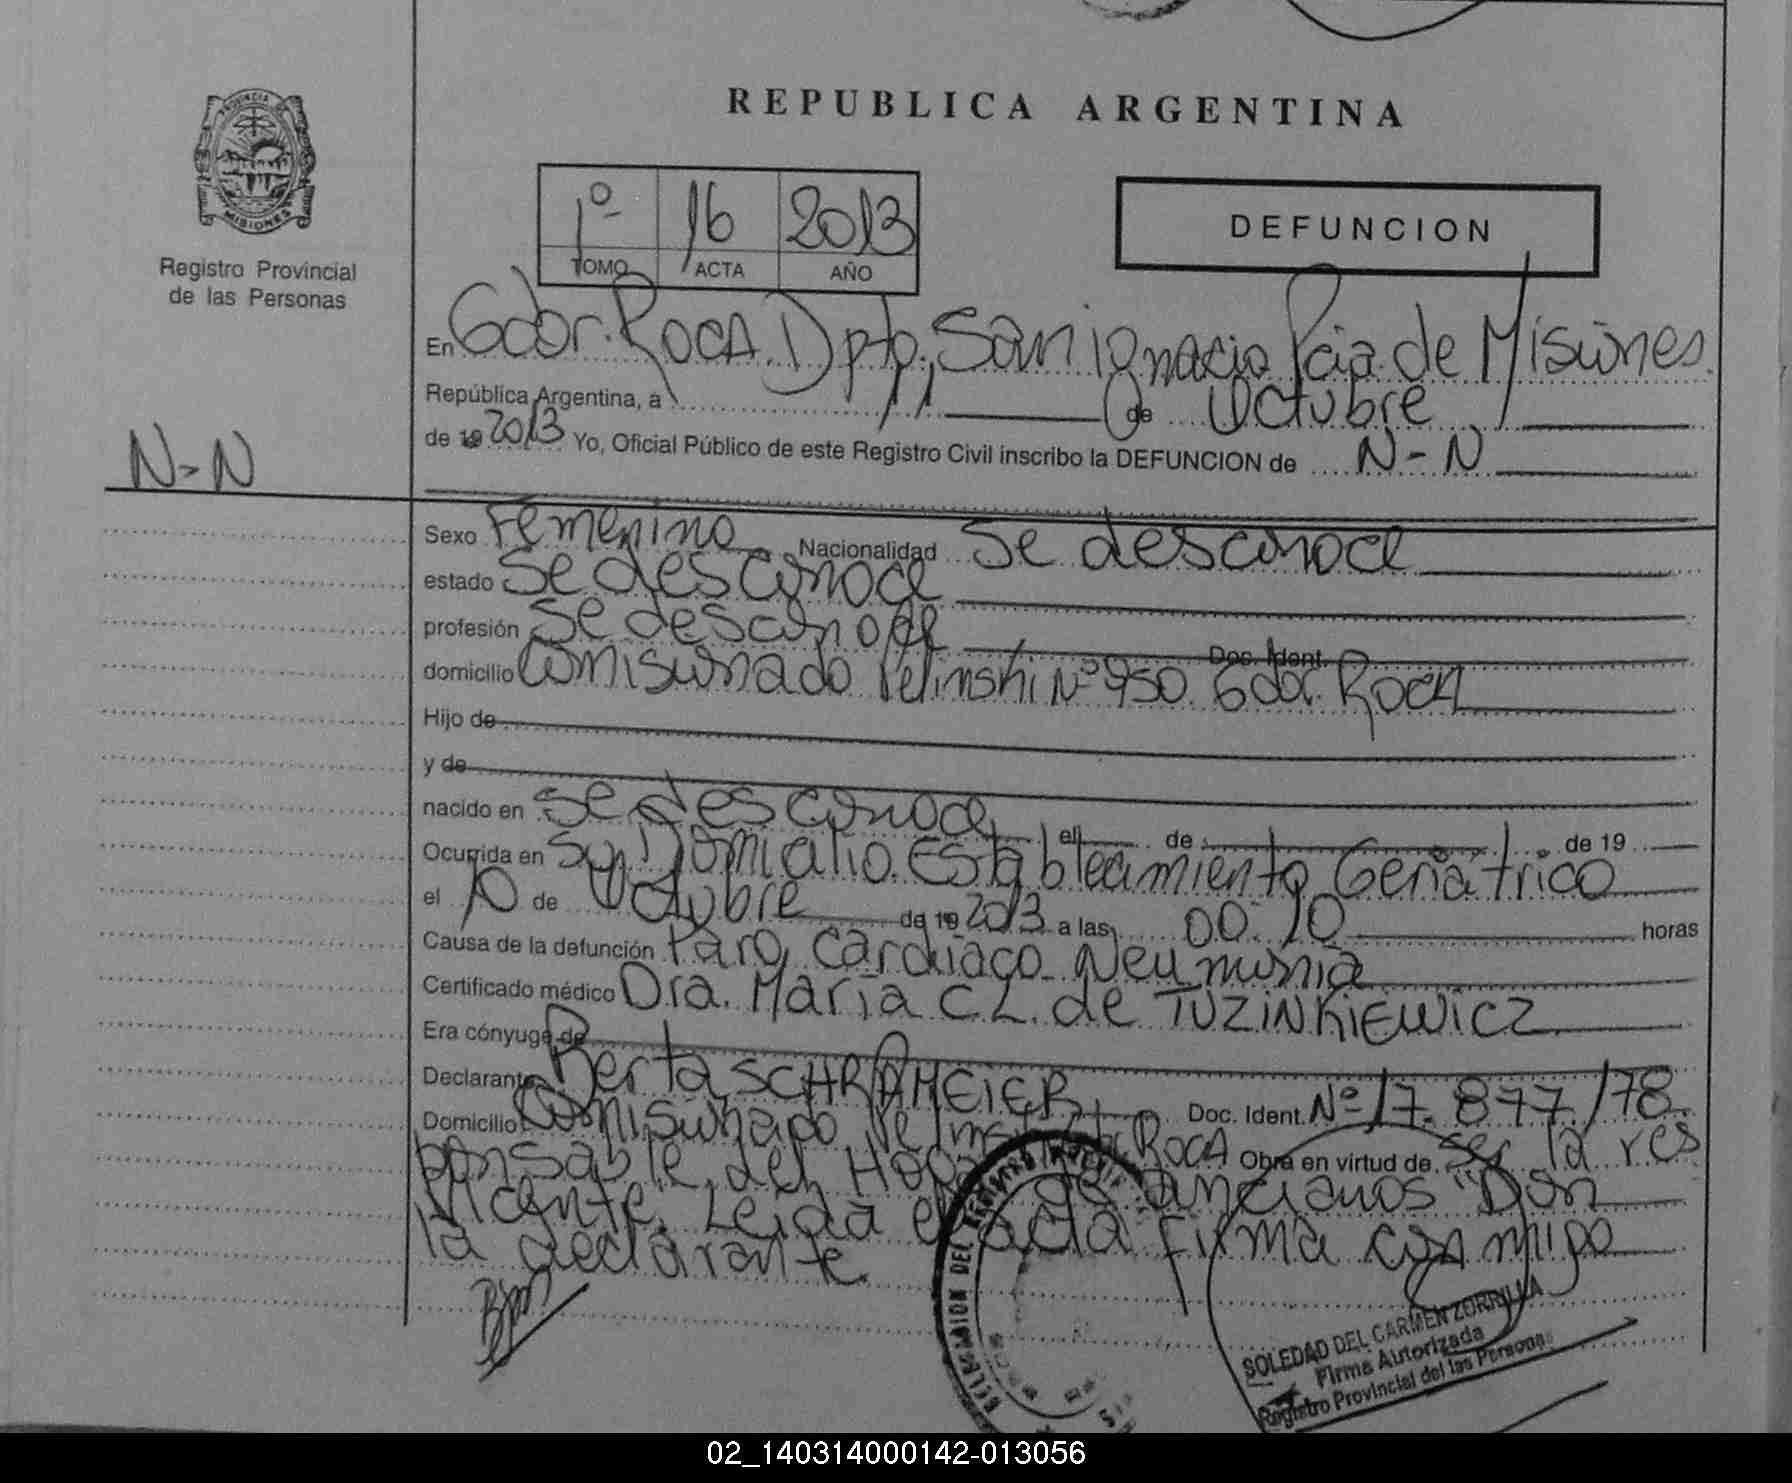 PROVINCIA DE
MISIONES
Registro Provincial
de las Personas
REPUBLICA ARGENTINA
1º 16 2013
TOMO ACTA AÑO
DEFUNCION
En Gdor. Roca. Dpto. San ignacio Pcia. de Misiones.
República Argentina, a 11 de Octubre
de 19 2013 Yo, Oficial Público de este Registro Civil inscribo la DEFUNCION de N-N
N-N
Sexo Femenino Nacionalidad Se desconoce
estado Se desconoce
profesión Se desconoce
Doc. Ident.
domicilio Comisionado Pelinski Nº 950. Gdor. Roca
Hijo de
y de
nacido en Se desconoce el de de 19
Ocurrida en Su Domicilio. Establecimiento Geriatrico
el 10 de Octubre de 19 2013 a las 00:10 horas
Causa de la defunción Paro Cardiaco - Neumonia
Certificado médico Dra. Maria C. L. de TUZINKIEWICZ
Era cónyuge de
Declarante Berta SCHRAMEIER Doc. Ident. Nº 17.877/78.
Domicilio Comisionado Roca Obra en virtud de ser la res
ponsable del Hogar de ancianos "Don
Vicente". Leida el acta firma con migo
la declarante.
SOLEDAD DEL CARMEN ZORRILLA
Firma Autorizada
Registro Provincial del las Personas
02_140314000142-013056